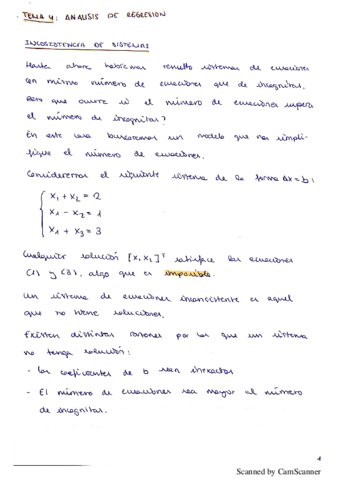 TEMA 4: ANALISIS DE REGRESION
INCOSISTENCIA DE SISTEMAS
Hasta ahora habíamos resuelto sistemas de ecuaciones
con mismo número de ecuaciones que de incognitas.
Pero que ocurre si el número de ecuaciones supera
el número de incognitas?
En este caso buscaremos un modelo que nos simpli-
fique el número de ecuaciones.
Consideremos el siguiente sistema de la forma Ax=b:
x₁ + x₂ = 2
x₁ - x₂ = 1
x₁ + x₂ = 3
Cualquier solución [x₁ x₂]ᵀ satisface las ecuaciones
(1) y (3), algo que es imposible.
Un sistema de ecuaciones inconsistente es aquel
que no tiene soluciones.
Existen distintas razones por las que un sistema
no tenga solución:
- Los coeficientes de b sean inexactos
- El número de ecuaciones sea mayor al número
de incognitas.
1
Scanned by CamScanner